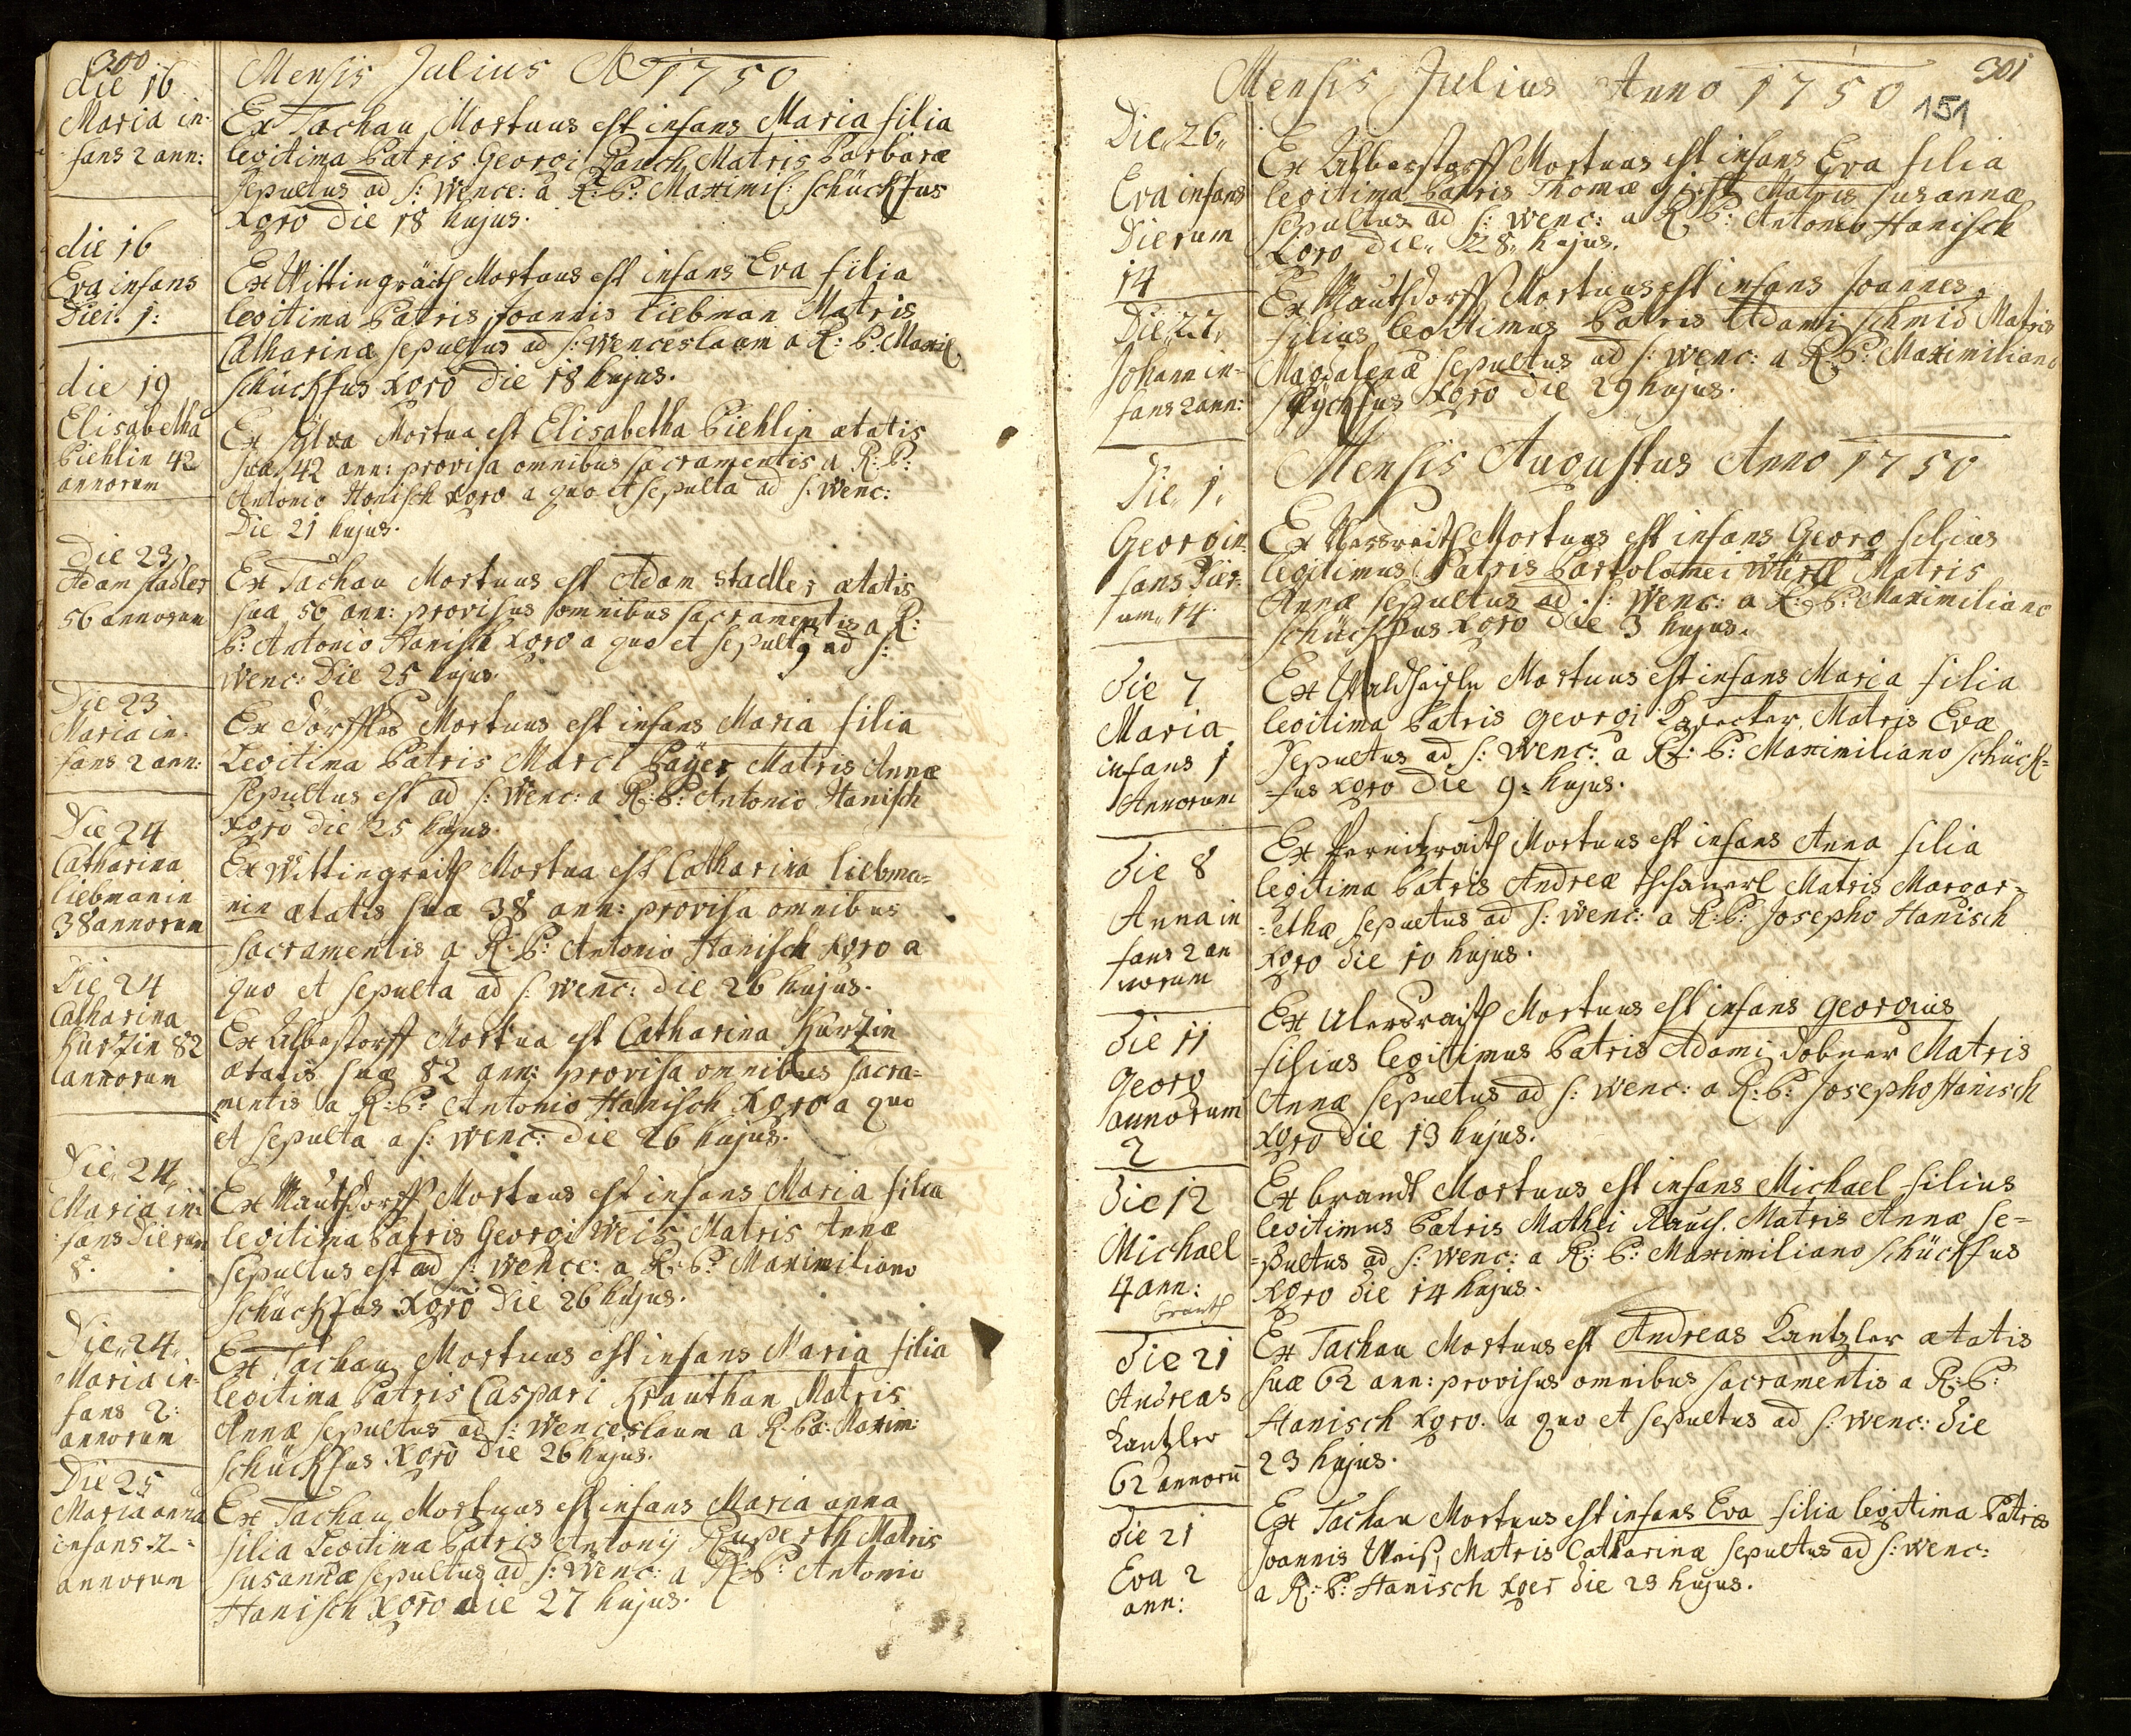 300
Mensis Julius Ao 1750
die 16
Maria in-
fans 2 ann:
Ex Tachau Mortuus est infans Maria filia
legitima Patris Georgi Pauch, Matris Barbaræ
Sepultus ad S: Wence: a R: P: Maximil: Schückfus
Xgro die 18 hujus.
die 16
Eva infans
Diei. 1:
Ex Wittingräith Mortuus est infans Eva filia
legitima Patris Joannis Liebman Matris
Catharinæ sepultus ad S: Wenceslaum a R: P: Maxil.
Schückfus Xgro Die 18 hujus.
die 19
Elisabetha
Piehlin 42
annorum
Ex Sylva Mortua est Elisabetha Piehlin ætatis
suæ 42 ann: provisa omnibus sacramentis a R: P:
Antonio Hanisch Xgro a quo et sepulta ad S: Wenc:
Die 21 hujus.
Die 23
Adam Stadler
56 annorum
Ex Tachau Mortuus est Adam Stadler ætatis
sua 56 ann: provisus omnibus sacramentis a R:
P: Antonio Hanisch Xgro a quo et sepult9 ad S:
Wenc: Die 25 hujus.
Die 23
Maria in-
fans 2 ann:
Ex Dörfflas Mortuus est infans Maria filia
Legitima Patris Marci Päyer Matris Annæ
Sepultus est ad S: Wenc: a R: P: Antonio Hanisch
Xgro die 25 hujus.
Die 24
Catharina
liebmanin
38 annorum
Ex Wittingraith Mortua est Catharina liebma-
nin ætatis suæ 38 ann: provisa omnibus
sacramentis a R: P: Antonio Hanisch Xgro a
quo et sepulta ad S: Wenc: die 26 hujus.
Die 24
Catharina
Kurtzin 82
annorum
Ex Albestorff Mortua est Catharina Kurtzin
ætatis suæ 82 ann: provisa omnibus sacra-
mentis a R: P: Antonio Hanisch Xgro a quo
et sepulta a S: Wenc: die 26 hujus.
Die 24
Maria in-
fans Dierum
8.
Ex Mautsdorff Mortuus est infans Maria filia
legitima Patris Georgi Weis, Matris Annæ
Sepultus est ad S: Wence: a R: P: Maximiliano
Schückfus Xgro Die 26 hujus.
Die 24
Maria in-
fans 2:
annorum
Ex Tachau Mortuus est infans Maria filia
legitima Patris Caspari Krauthan Matris
Annæ sepultus ad S: Wenceslaum a R. P: Maxim:
Schückfus Xgro die 26 hujus.
Die 25
Maria anna
infans 2:
annorum
Ex Tachau Mortuus est infans Maria anna
filia Legitima Patris Antonij Ruperth Matris
Susannæ sepultus ad S: Wenc: a R: P: Antonio
Hanisch Xgro die 27 hujus.
301
151
Mensis Julius Anno 1750
Die 26
Eva infans
Dierum
14
Ex Albersstorff Mortuus est infans Eva filia
legitima Patris Thomæ Matris Susannæ
sepultus ad S: Wenc: a R: P: Antonio Hanisch
Xgro die 28 hujus.
Die 27
Johann in-
fans 2 ann:
Ex Mautsdorff Mortuus est infans Joannes
filius legitimus Patris Adami Schmid Matris
Magdalenæ sepultus ad S: Wenc: a R: P: Maximiliano
Schückfus Xgro die 29 hujus.
Mensis Augustus Anno 1750
Die 1
Georg in-
fans Dier-
um 14.
Ex Mortuus est infans Georg filius
legitimus Patris Bartolomei Würtl Matris
Annæ sepultus ad S: Wenc: a R: P: Maximiliano
Schückfus Xgro die 3 hujus.
die 7
Maria
infans 1
Annorum
Ex Waldhaisln Mortuus est infans Maria filia
legitima Patris Georgi Matris Evæ
Sepultus ad S: Wenc: a R: P: Maximiliano Schück-
=fus Xgro Die 9 hujus.
Die 8
Anna in
fans 2 an
norum
Ex Pernitzraith Mortuus est infans Anna filia
legitima Patris Andreæ Matris Margar-
=ethæ sepultus ad S: Wenc: a R: P: Josepho Hanisch
Xgro die 10 hujus.
Die 11
Georg
annorum
2
Ex Ulersraith Mortuus est infans Georgius
filius legitimus Patris Adami Dobner Matris
Annæ sepultus ad S: Wenc: a R: P: Josepho Hanisch
Xgro die 13 hujus.
Die 12
Michael
4 ann:
brandt
Ex brandt Mortuus est infans Michael filius
legitimus Patris Mathei Rauch. Matris Annæ se=
=pultus ad S: Wenc: a R: P: Maximiliano Schückfus
Xgro die 14 hujus.
Die 21
Andreas
Kantzler
62 annorū
Ex Tachau Mortuus est Andreas Kantzler ætatis
suæ 62 ann: provisus omnibus sacramentis a R: P:
Hanisch Xgro. a quo et sepultus ad S: Wenc: die
23 hujus.
Die 21
Eva 2
ann:
Ex Tachau Mortuus est infans Eva filia legitima Patris
Joannis Weis, Matris Catharinæ sepultus ad S: Wenc:
a R: P: Hanisch Xger die 23 hujus.